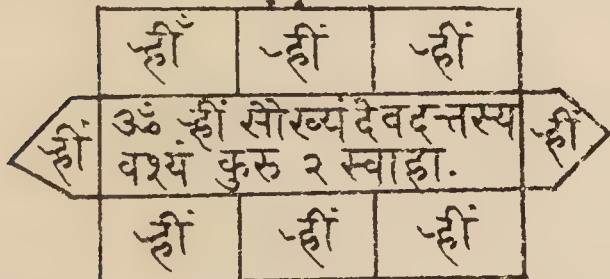 ह्रीँ ह्रीं ह्रीं
ह्रीं ॐ ह्रीं सौख्यं देवदत्तस्य ह्रीं
वश्यं कुरु २ स्वाहा.
ह्रीं ह्रीं ह्रीं